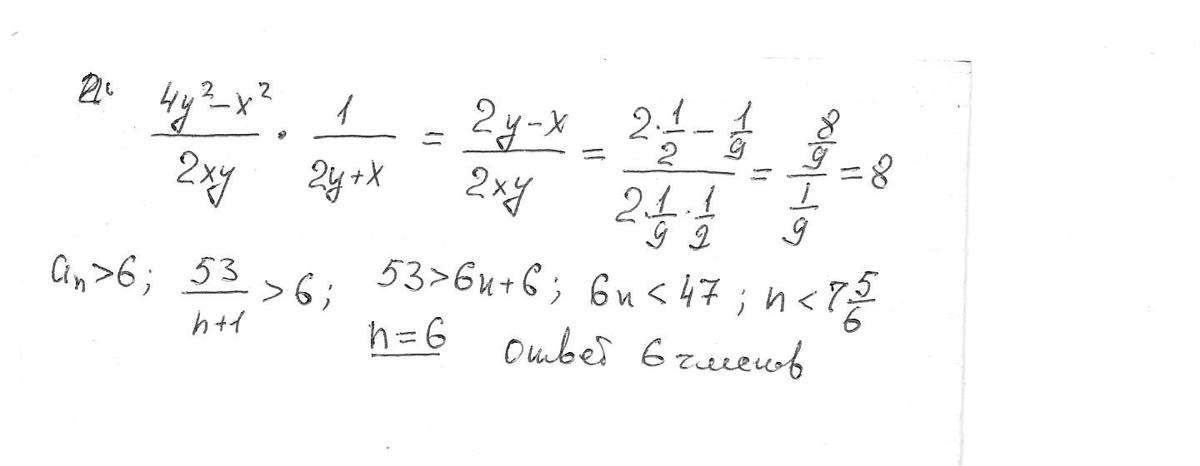 2. \frac{4y^2-x^2}{2xy} \cdot \frac{1}{2y+x} = \frac{2y-x}{2xy} = \frac{2\cdot\frac{1}{2}-\frac{1}{9}}{2\cdot\frac{1}{9}\cdot\frac{1}{2}} = \frac{\frac{8}{9}}{\frac{1}{9}} = 8
a_n>6; \frac{53}{n+1}>6; 53>6n+6; 6n<47; n<7\frac{5}{6}
n=6 Ответ 6 членов